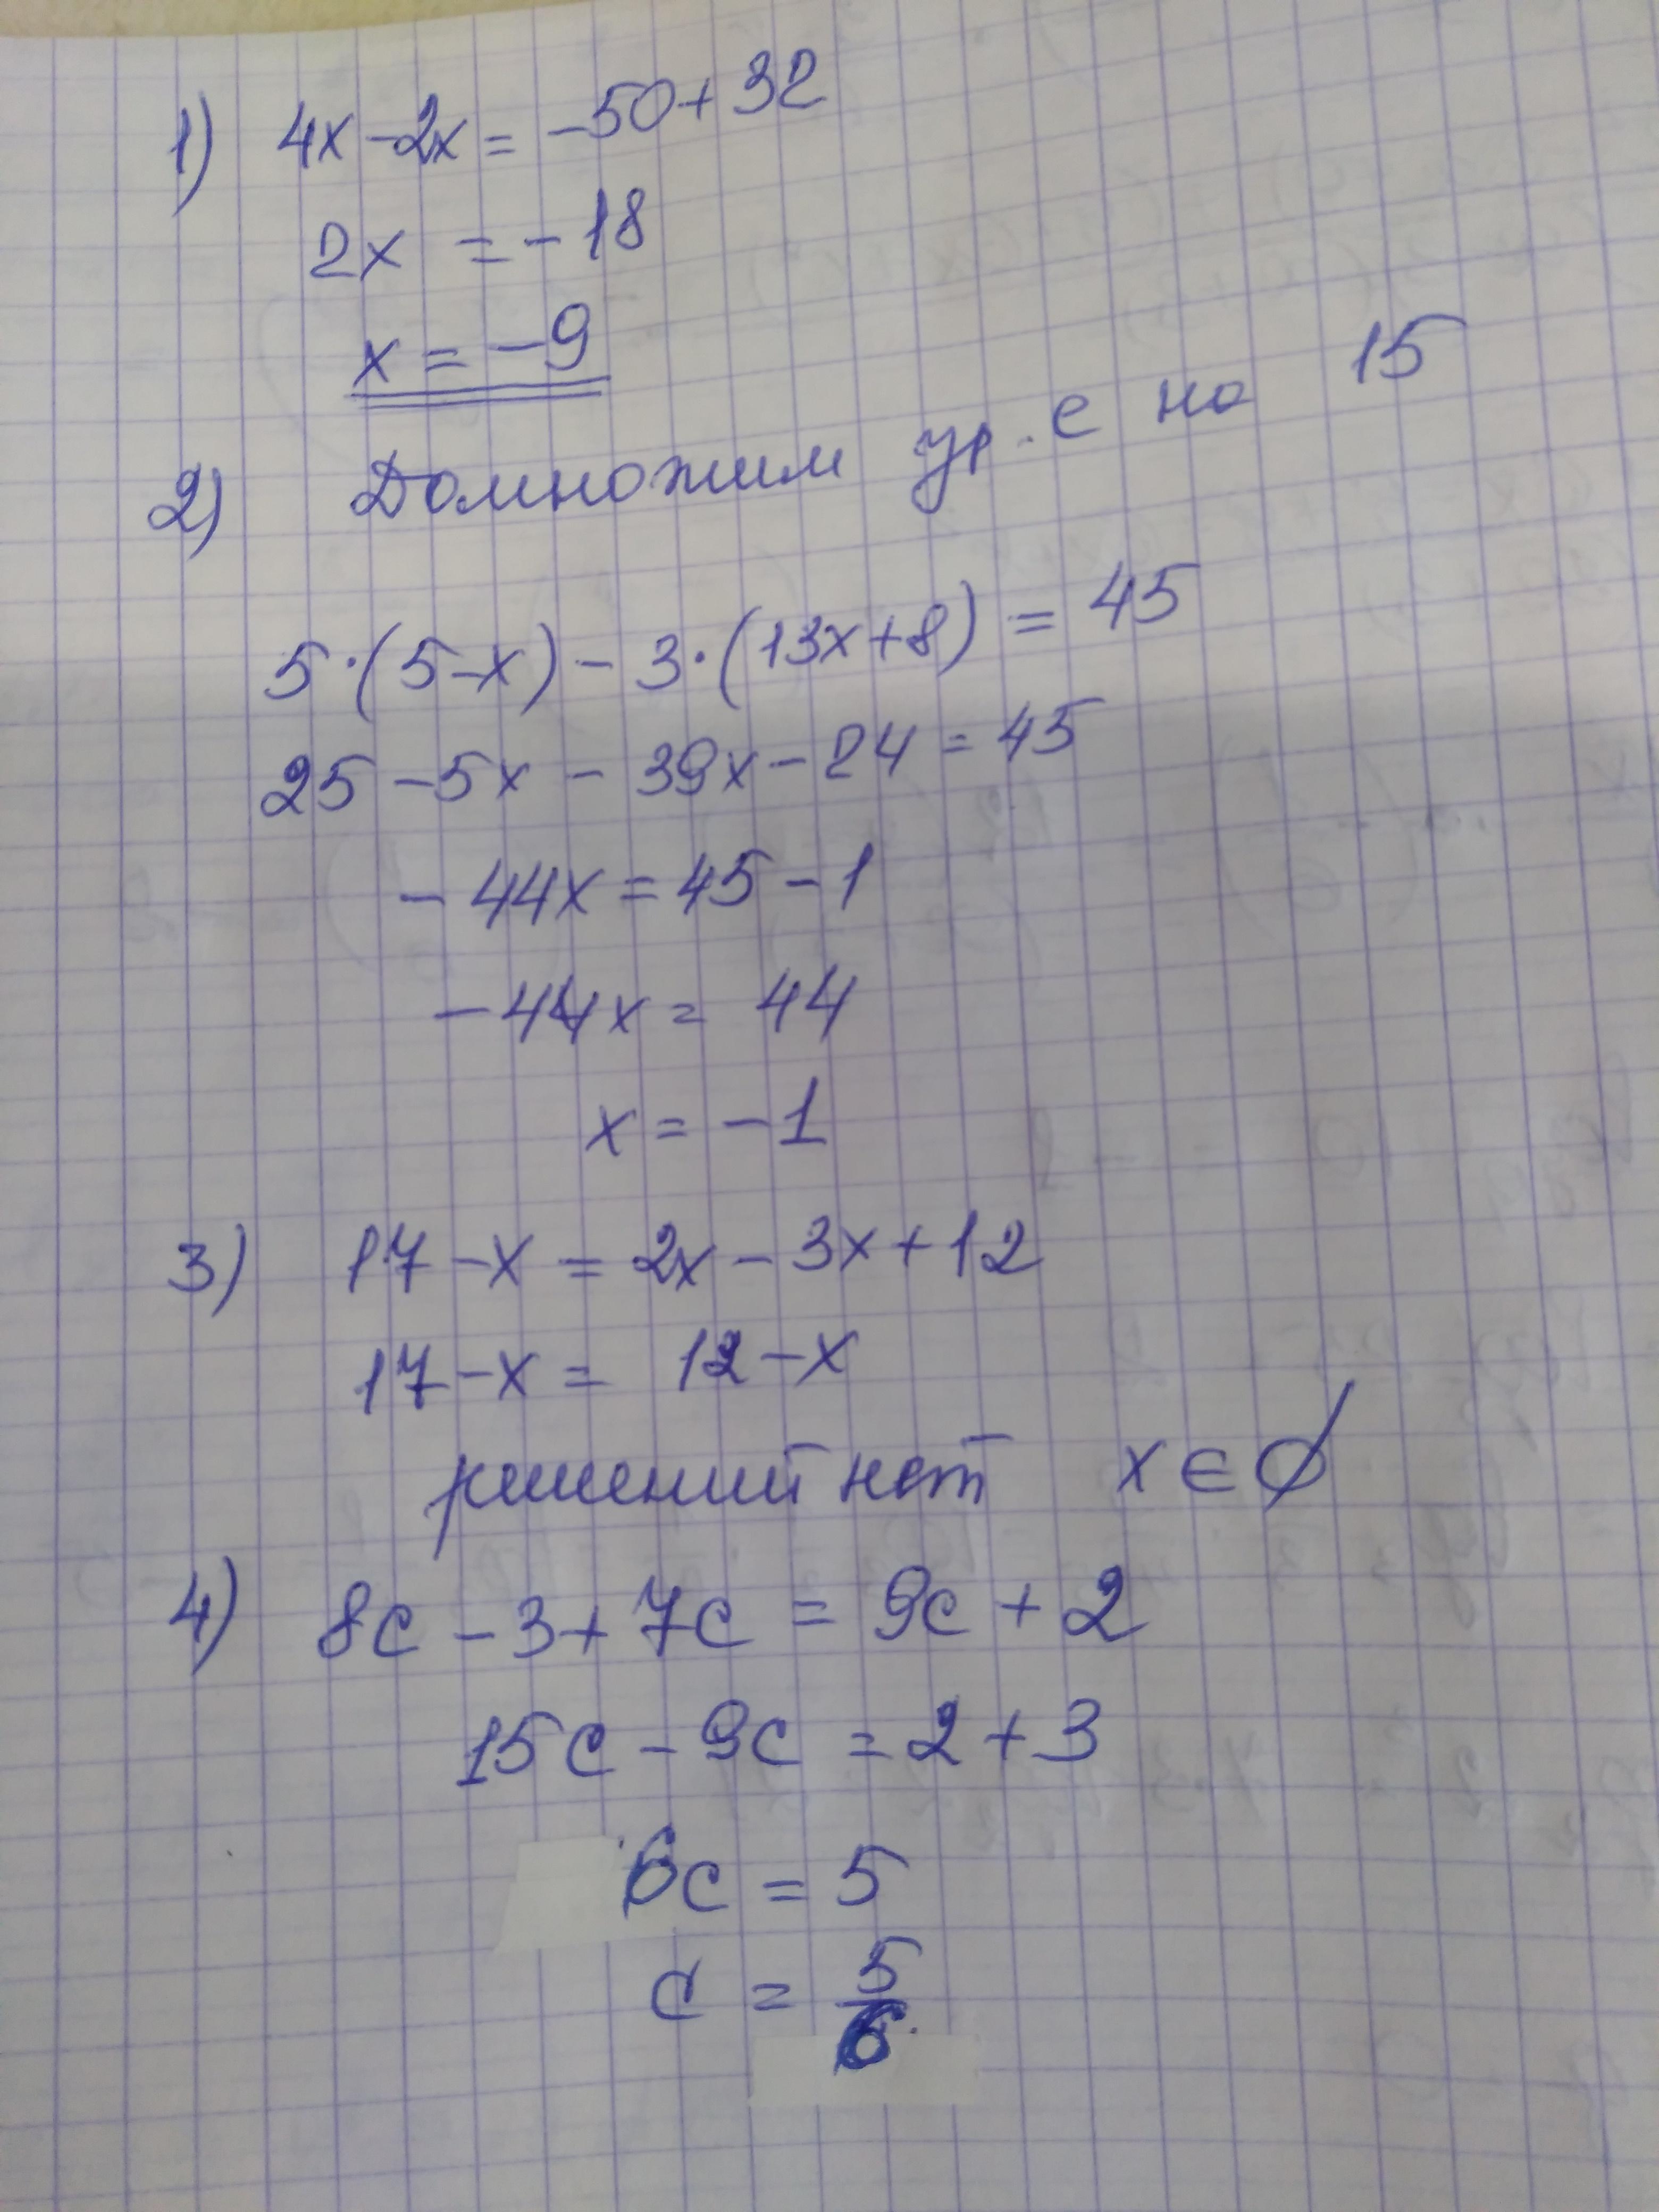 1) 4x-2x=-50+32
2x =-18
x=-9
2) Домножим ур.е на 15
5·(5-x)-3·(13x+8)=45
25-5x-39x-24=45
-44x=45-1
-44x=44
x=-1
3) 17-x=2x-3x+12
17-x= 12-x
решений нет x∈∅
4) 8c-3+7c=9c+2
15c-9c=2+3
6c=5
c=5/6